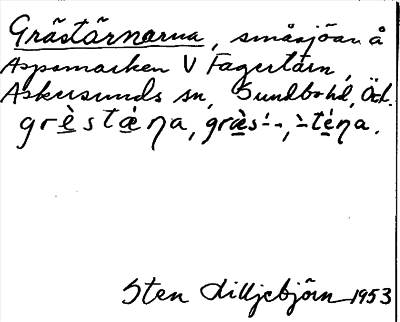 Grästärnarna, småsjöar å
Aspamarken V Fagertärn,
Askersunds sn, Sundbo hd, Öd.
grèstæ̀ṇa, græ̀s-́-, -̀téṇa.
Sten Lilljebjörn 1953